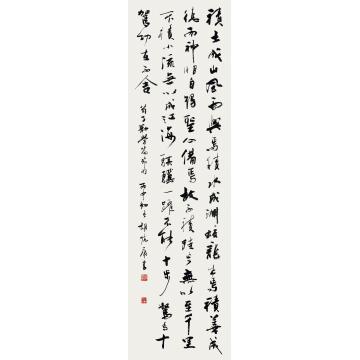 積土成山風雨興焉積水成淵蛟龍生焉積善成
德而神明自得聖心備焉故不積跬步無以至千里
不積小流無以成江海騏驥一躍不能十步駑馬十
駕功在不舍 荀子勸學篇節句 丙申